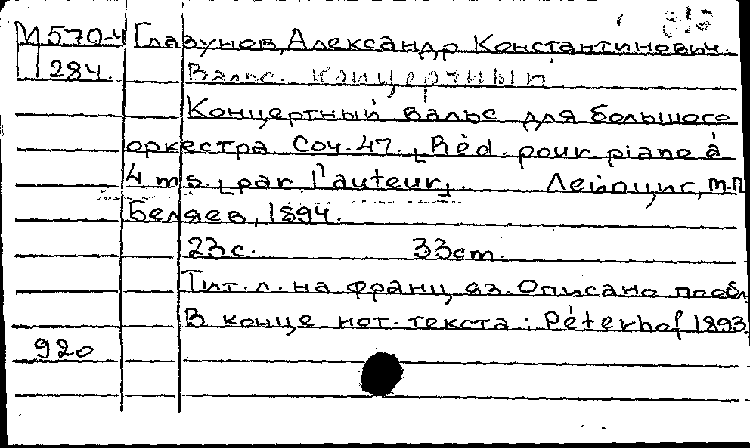 М570-4 Глазунов, Александр Константинович.
1284 Вальс. Концертный
Концертный вальс для большого
оркестра. Соч. 47. Réd. pour piano à
4 ms. par l'auteur. Лейпциг, М.П.
Беляев, 1894.
23 с. 33 cm.
Тит. л. на франц. яз. Описано по обл.
В конце нот. текста: Péterhof 1893.
920